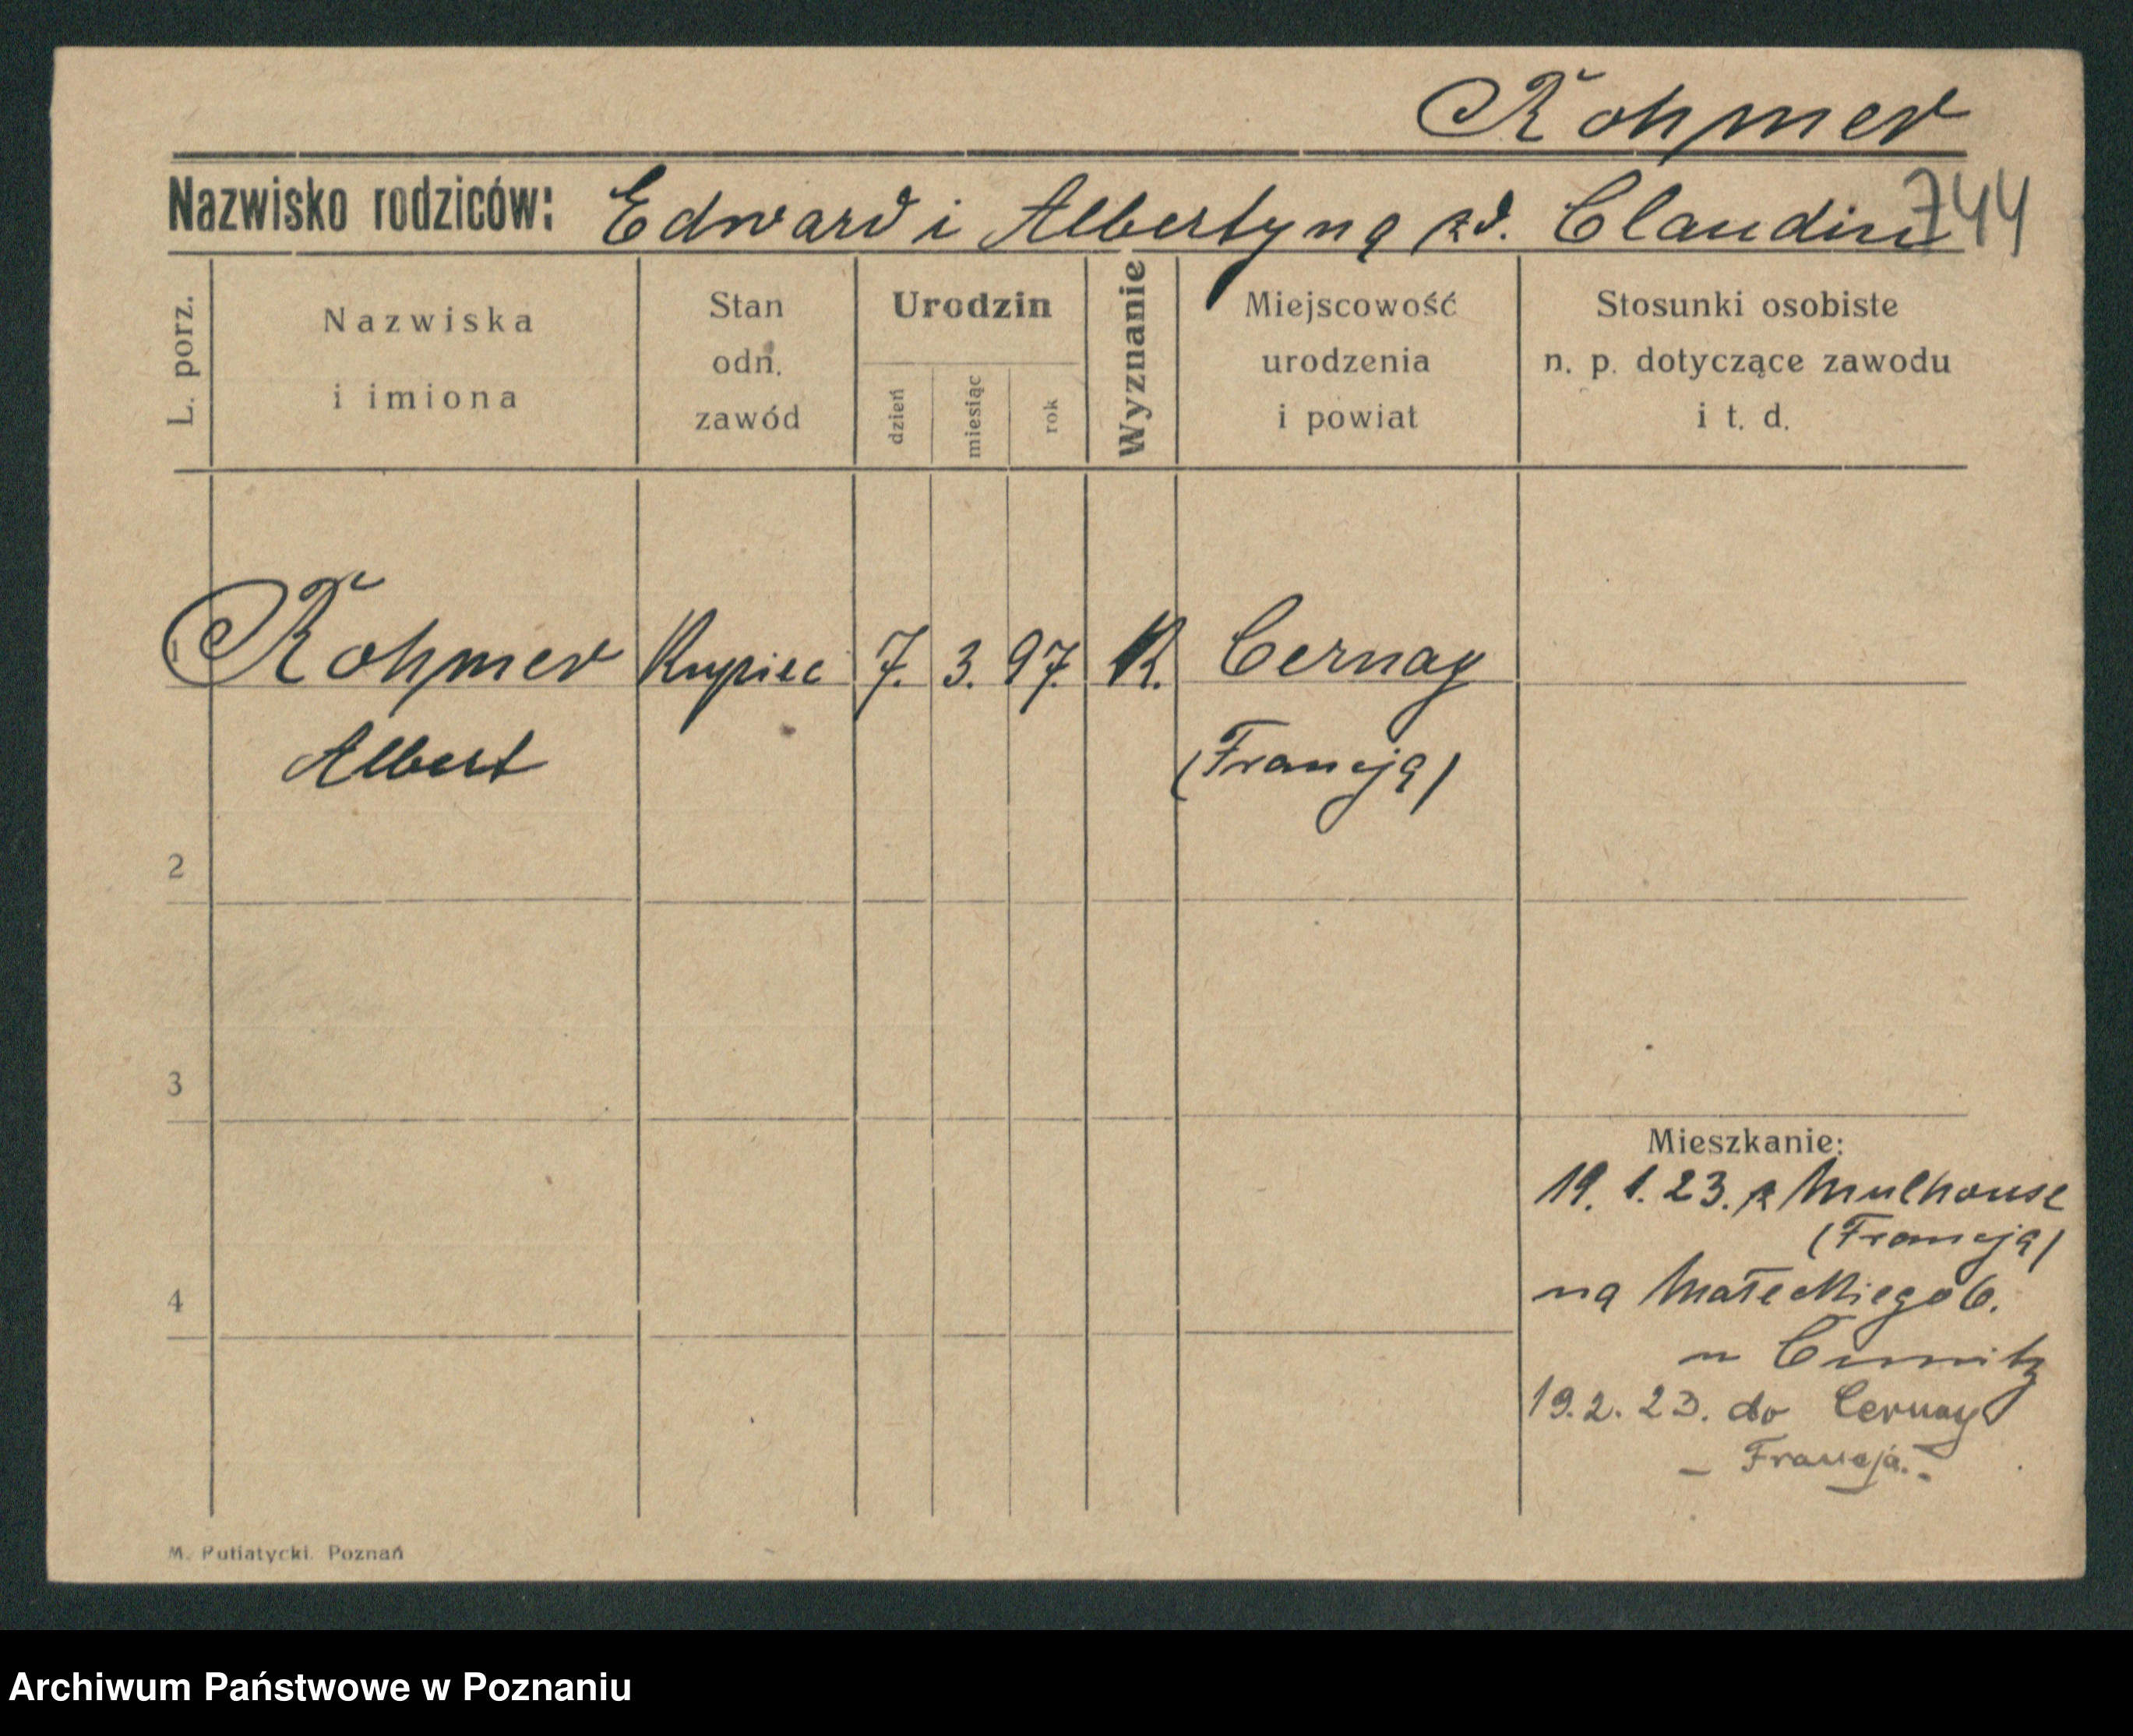 Rohmer
Nazwisko rodziców: Edward i Albertyna zd. Claudin 744
L. porz.
Nazwiska
i imiona
Stan
odn.
zawód
Urodzin
dzień
miesiąc
rok
Wyznanie
Miejscowość
urodzenia
i powiat
Stosunki osobiste
n. p. dotyczące zawodu
i t. d.
1 Rohmer Kupiec 7. 3. 97. K. Cernay
Albert (Francja)
2
3
Mieszkanie:
19. 1. 23. z Mulhouse
(Francja)
4
na Małeckiego 6.
u
19. 2. 23. do Cernay
- Francja. -
M. Putiatycki. Poznań
Archiwum Państwowe w Poznaniu